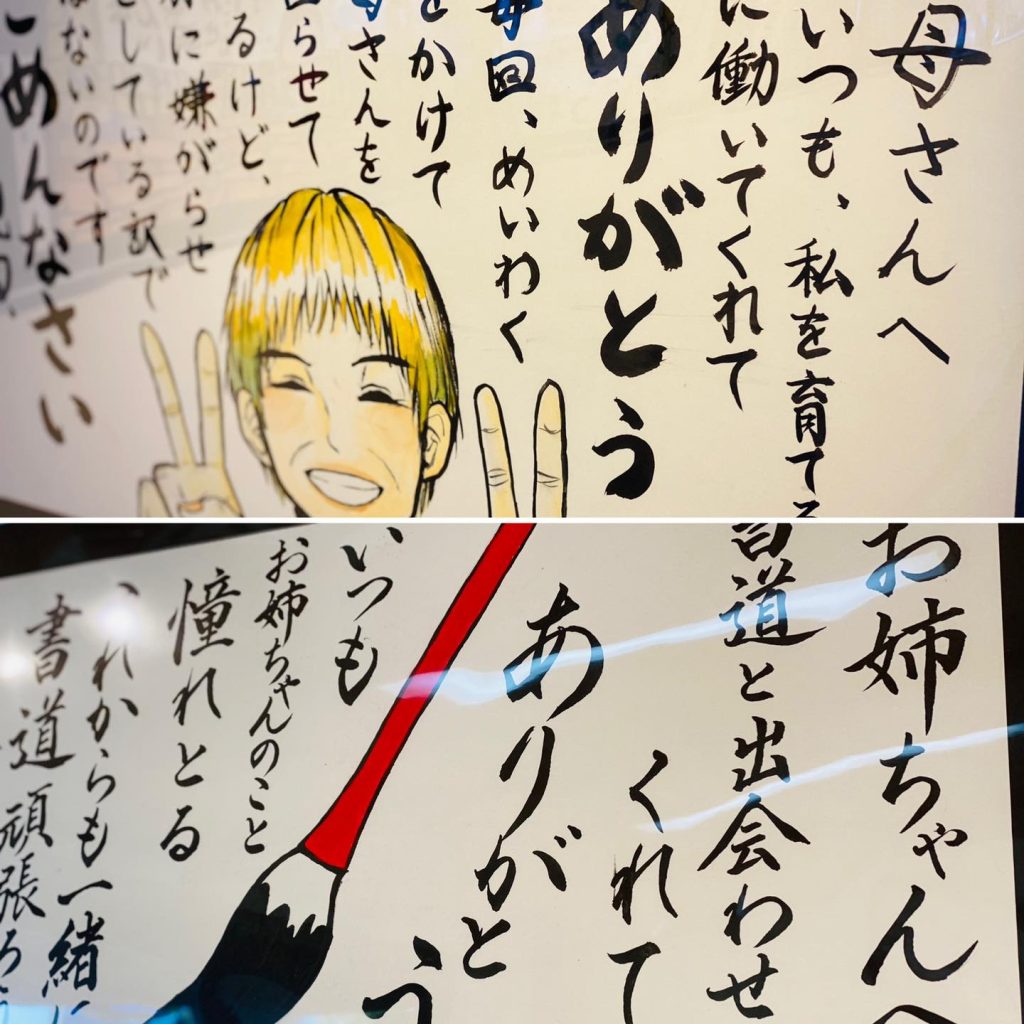 母さんへ
いつも、私を育てる
に働いてくれて
ありがとう
毎回、めいわく
をかけて
母さんを
らせて
るけど、
に嫌がらせ
している訳で
はないのです
ごめんなさい
お姉ちゃんへ
書道と出会わせ
くれて
ありがとう
いつも
お姉ちゃんのこと
憧れとる
これからも一緒に
書道頑張ろう